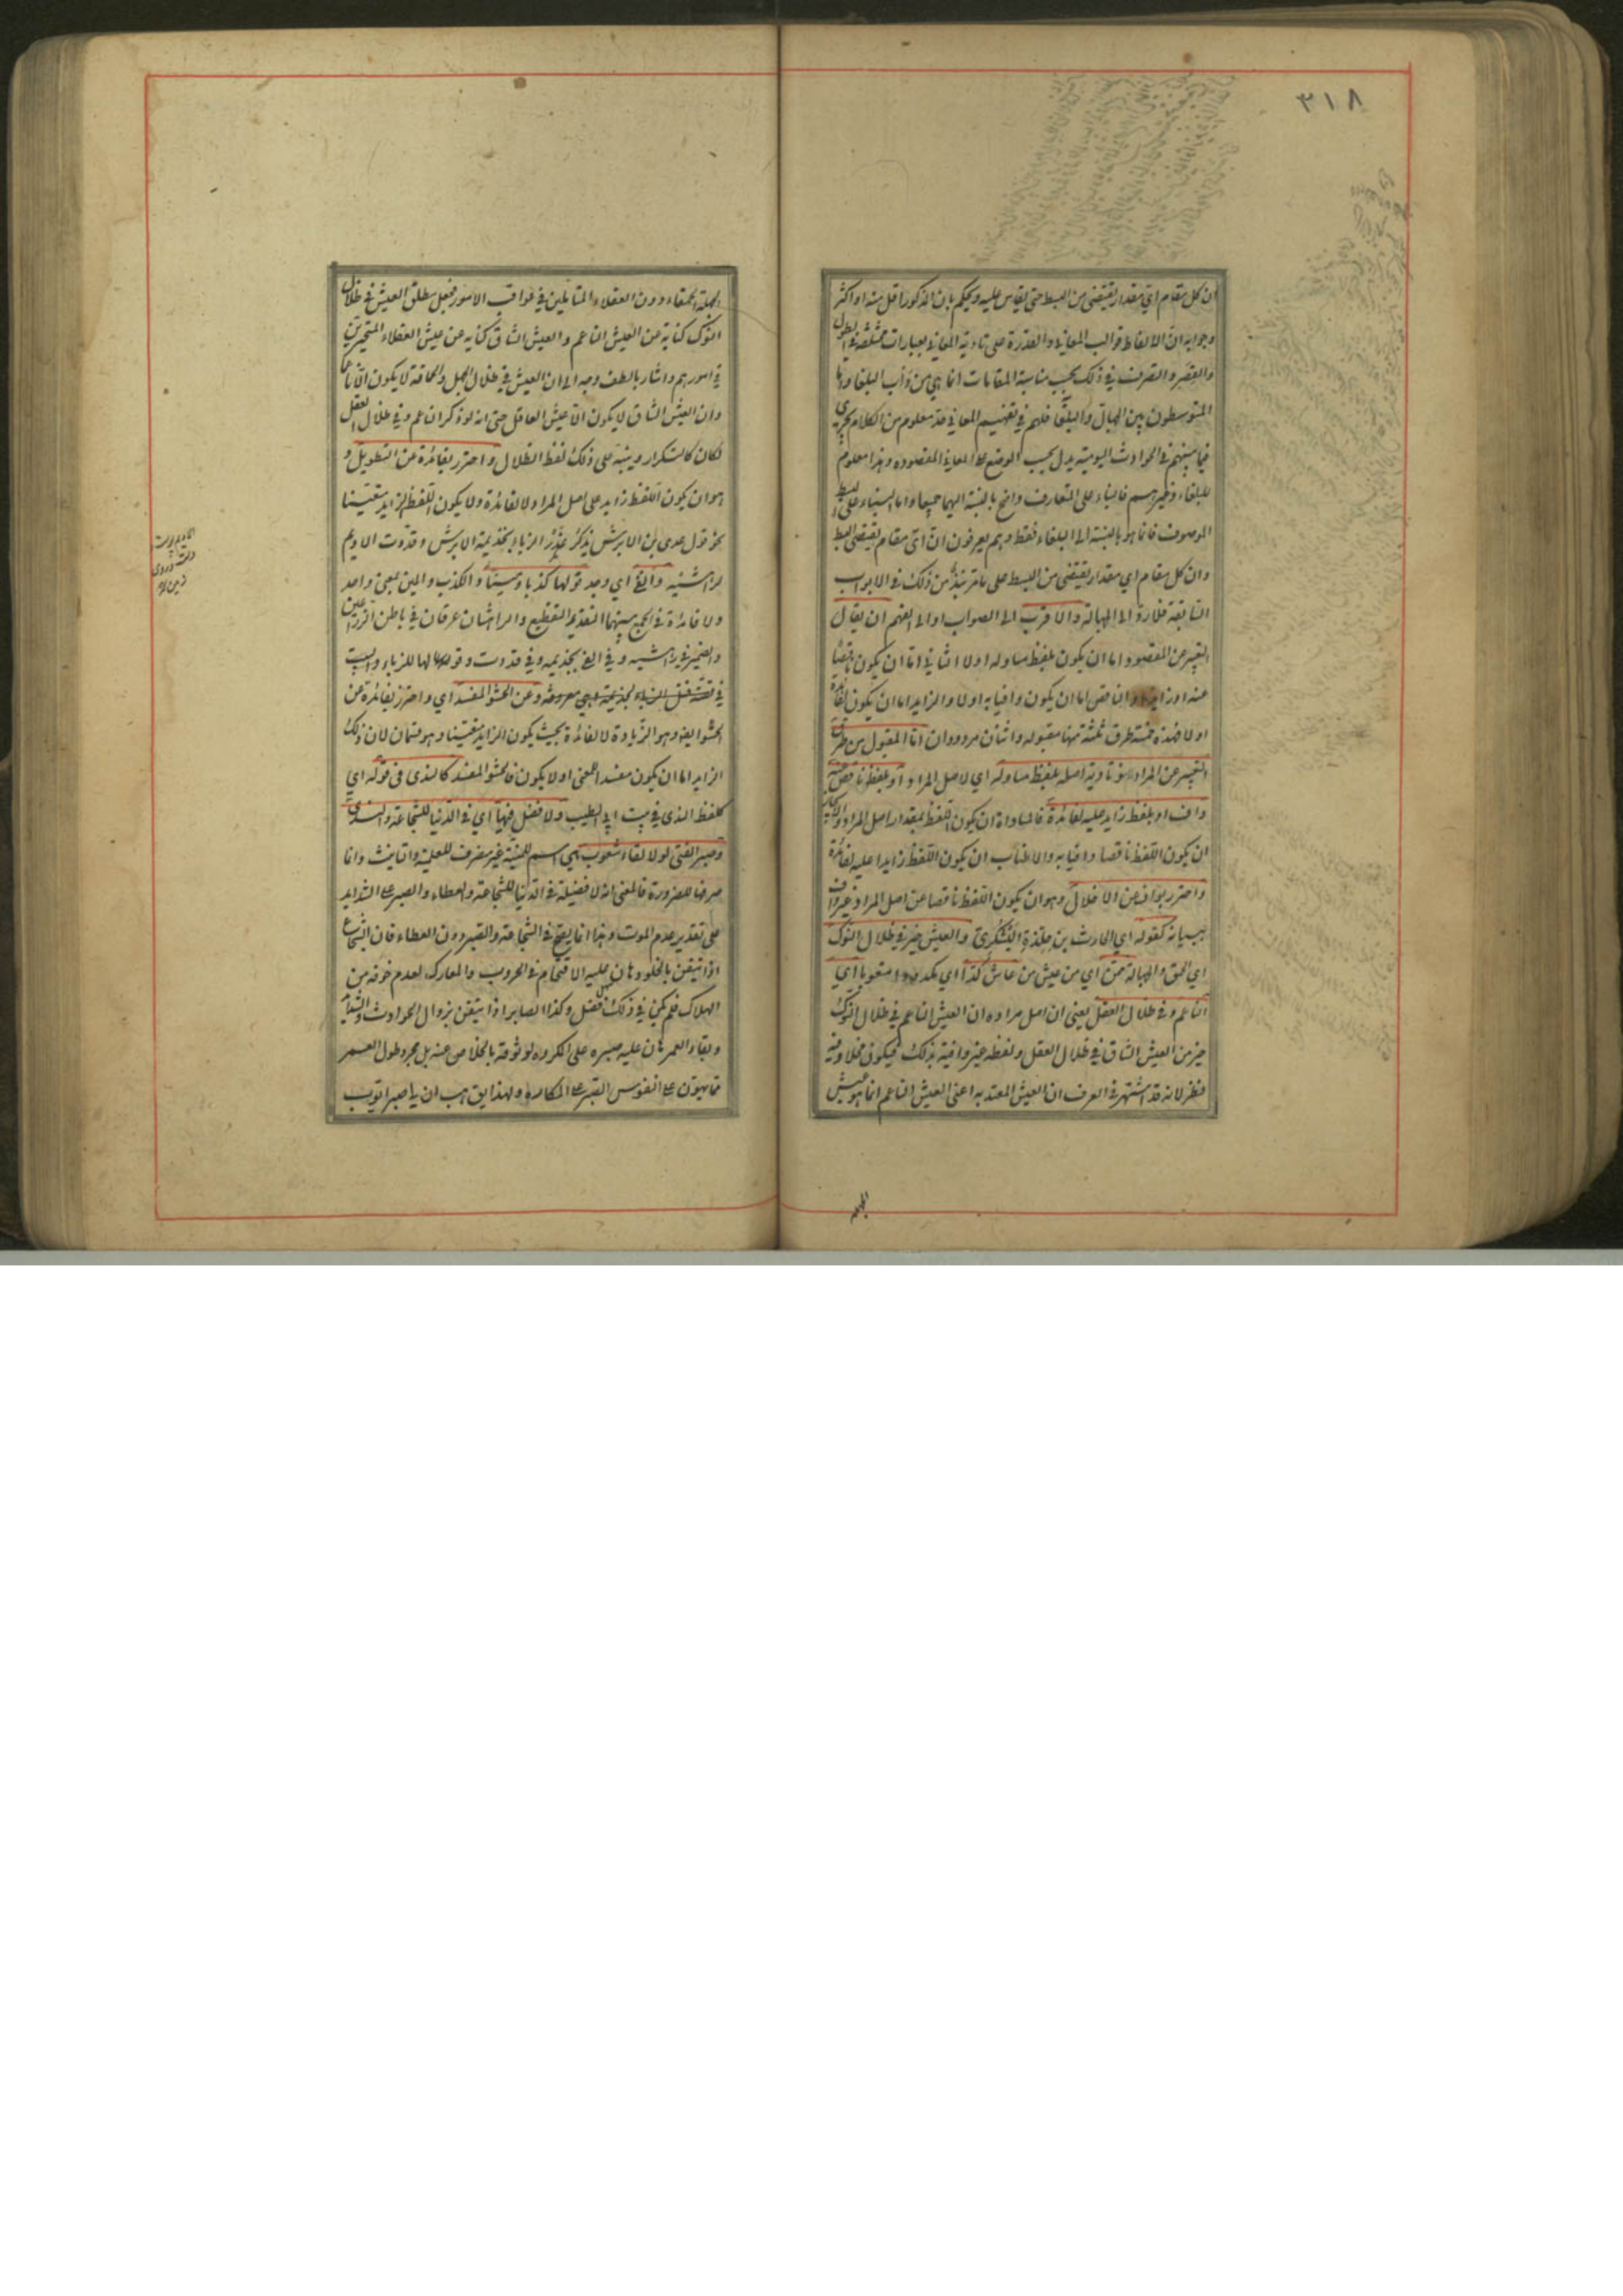 ٣١٨
ان كل مقام اى مقدار يقتضى من البسط حتى يقاس عليه ويحكم بان المذكور اقل منه او اكثر
وجوابه ان الالفاظ قوالب المعانى والقدرة على تادية المعانى بعبارات مختلفة فى الطول
والقصر والتصرف فى ذلك بحسب مناسبة المقامات انما هى من دأب البلغاء واما
المتوسطون بين الجهال والبلغاء فلهم فى تفهيم المعانى حد معلوم من الكلام يجرى
فيما بينهم فى الحوادث اليومية يدل بحسب الوضع على المعانى المقصودة وهذا معلوم
للبلغاء وغيرهم فالبناء على المتعارف واضح بالنسبة اليهما جميعا واما البناء على البسط
الموصوف فانما هو بالنسبة الى البلغاء فقط وهم يعرفون ان اى مقام يقتضى البسط
وان كل مقام اي مقدار يقتضى من البسط على ما مر نبذ من ذلك فى الابواب
السابقة فلا رد الى الجهالة والاقرب الى الصواب او الى الفهم ان يقال
التعبير عن المقصود اما ان يكون بلفظ مساو له اولا الثانى اما ان يكون ناقصا
عنه او زايدا والناقص اما ان يكون وافيا به اولا والزايد اما ان يكون لفائدة
اولا فهذه خمسة طرق ثلثة منها مقبوله واثنان مردودان اما المقبول من طرق
التعبير عن المراد هو تادية اصله بلفظ مساو له اي لاصل المراد او بلفظ ناقص عنه
واف او بلفظ زايد عليه لفائدة فالمساواة ان يكون اللفظ بمقدار اصل المراد والايجاز
ان يكون اللفظ ناقصا وافيا به والاطناب ان يكون اللفظ زايدا عليه لفائدة
واحترز بواف عن الاخلال وهو ان يكون اللفظ ناقصا عن اصل المراد غير واف
ببيانه كقوله اي الحارث بن حلزة اليشكرى والعيش خير فى ظلال النوك
اي الحمق والجهالة ممن اي من عيش من عاش كدا اي مكدودا متعوبا اي
الناعم وفى ظلال العقل يعنى ان اصل مراده ان العيش الناعم فى ظلال النوك
خير من العيش الشاق فى ظلال العقل ولفظه غير وافية بذلك فيكون مخلا وفيه
نظر لانه قد اشتهر فى العرف ان العيش المعتد به اعنى العيش الناعم انما هو عيش
الجهلة الحمقاء دون العقلاء المتاملين فى عواقب الامور فجعل مطلق العيش فى ظلال
النوك كناية عن العيش الناعم والعيش الشاق كناية عن عيش العقلاء المتحيرين
فى امورهم واشار بالطف وجه الى ان العيش فى ظلال الجهل والحماقة لا يكون الا ناعما
وان العيش الشاق لا يكون الا عيش العاقل حتى انه لو ذكر الناعم وفى ظلال العقل
لكان كالتكرار وينبه على ذلك لفظ الظلال واحترز بفائدة عن التطويل و
هو ان يكون اللفظ زايد على اصل المراد لا لفائدة ولا يكون اللفظ الزايد متعينا
نحو قول عدى بن الابرش يذكر غدر الزباء بجذيمة الابرش وقددت الاديم
لراهشيه والفى اي وجد قولها كذبا ومينا والكذب والمين بمعنى واحد
ولا فائدة فى الجمع بينهما التقديد التقطيع والراهشان عرقان فى باطن الذراعين
والضمير فى راهشيه وفى الفى بجذيمه وفى قددت وقولها للزباء والبيت
فى قصة قتل الزباء لجذيمة وهي معروفة وعن الحشو المفسد اي واحترز بفائدة عن
الحشو ايضا وهو الزيادة لا لفائدة بحيث يكون الزايد متعينا وهو قسمان لان ذلك
الزايد اما ان يكون مفسدا للمعنى او لا يكون فالحشو المفسد كالندى فى قوله اي
كلفظ الندى فى بيت ابى الطيب ولا فضل فيها اي فى الدنيا للشجاعة والندى
وصبر الفتى لولا لقاء شعوب هي اسم للمنية غير منصرف للعلمية والتانيث وانما
صرفها للضرورة فالمعنى انه لا فضيلة فى الدنيا للشجاعة والعطاء والصبر على الشدايد
على تقدير عدم الموت وهذا انما يصح فى الشجاعة والصبر دون العطاء فان الشجاع
اذا تيقن بالخلود هان عليه الاقتحام فى الحروب والمعارك لعدم خوفه من
الهلاك فلم يكن فى ذلك فضل وكذا الصابر اذا تيقن بزوال الحوادث والشدايد
وبقاء العمر هان عليه صبره على المكروه لوثوقه بالخلاص عنه بل مجرد طول العمر
مما يهون على النفوس الصبر على المكاره ولهذا يق هب ان لى صبر ايوب